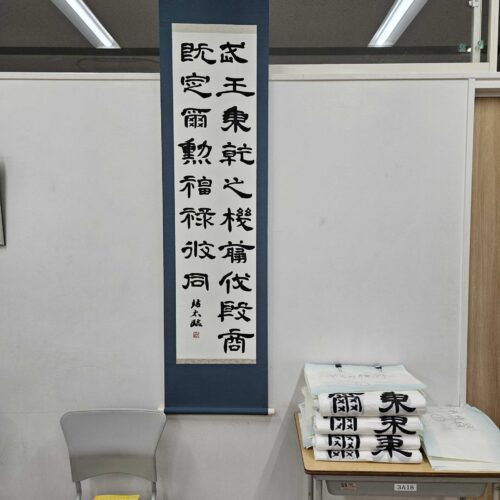 武王秉乾之機翦伐殷商
既定爾勳福祿攸同
太臨
爾 秉
爾 秉
爾 秉
3A18